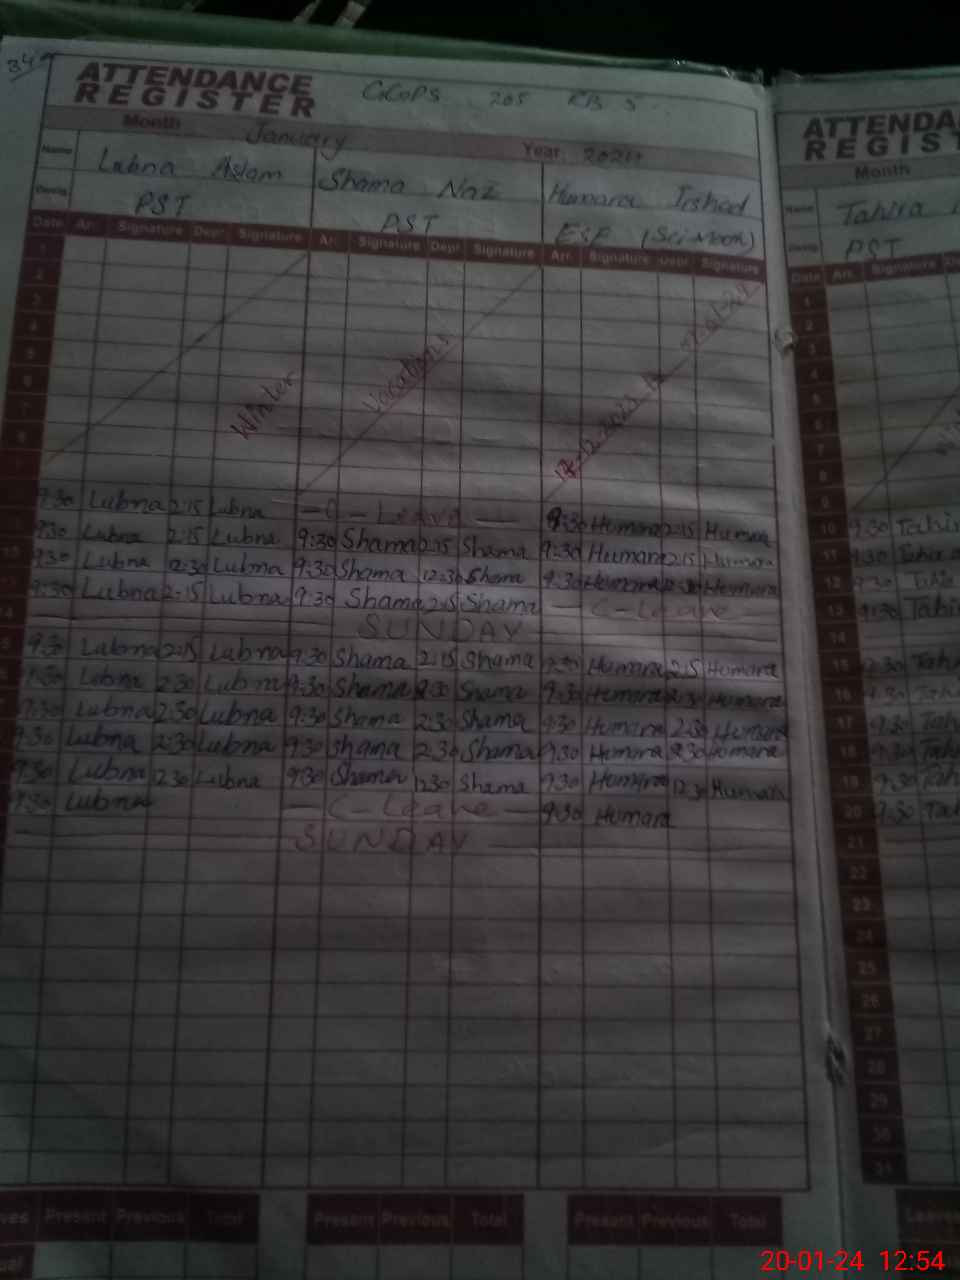 ATTENDANCE
REGISTER
205
Month January Year 2024
Name Lubna Aslam Shama Naz Humara Irshad
PST PST ESE
Date Arr. Signature Dept. Signature Arr. Signature Dept. Signature Arr. Signature Dept. Signature
1
2
3
4
5
6
7
8
Winter Vacations
9:30 Lubna 2:15 Lubna — C - Leave — 9:30 Humara 2:15 Humara
9:30 Lubna 2:15 Lubna 9:30 Shama 2:15 Shama 9:30 Humara 2:15 Humara
9:30 Lubna 12:30 Lubna 9:30 Shama 12:30 Shama 9:30 Humara 12:30 Humara
9:30 Lubna 2:15 Lubna 9:30 Shama 2:15 Shama — C - Leave —
14 SUNDAY
9:30 Lubna 2:15 Lubna 9:30 Shama 2:15 Shama 9:30 Humara 2:15 Humara
9:30 Lubna 2:30 Lubna 9:30 Shama 2:30 Shama 9:30 Humara 2:30 Humara
9:30 Lubna 2:30 Lubna 9:30 Shama 2:30 Shama 9:30 Humara 2:30 Humara
9:30 Lubna 2:30 Lubna 9:30 Shama 2:30 Shama 9:30 Humara 2:30 Humara
9:30 Lubna 12:30 Lubna 9:30 Shama 12:30 Shama 9:30 Humara 12:30 Humara
9:30 Lubna — C - Leave — 9:30 Humara
SUNDAY
Present Previous Total Present Previous Total Present Previous Total
ATTENDA
REGIST
Month
Name Tahira
PST
Date Arr. Signature
1
2
3
4
5
6
7
8
9
10 9:30 Tahi
11 9:30 Tahira
12 9:30 Tahi
13 9:30 Tahi
14
15 9:30 Tah
16 9:30 Tah
17 9:30 Tah
18 9:30 Tah
19 9:30 Tah
20 9:30 Tah
21
22
23
24
25
26
27
28
29
30
31
Leaves
20-01-24 12:54